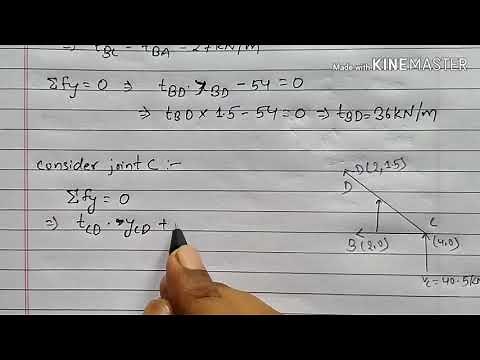 ⇒ t_BC = t_BA = 27 kN/m
Made with KINEMASTER
Σfy = 0 ⇒ t_BD · y_BD - 54 = 0
⇒ t_BD × 1.5 - 54 = 0 ⇒ t_BD = 36 kN/m
consider joint C :-
Σfy = 0
⇒ t_CD · y_CD +
D(2,1.5)
D
C
B(2,0)
(4,0)
Vc = 40.5k